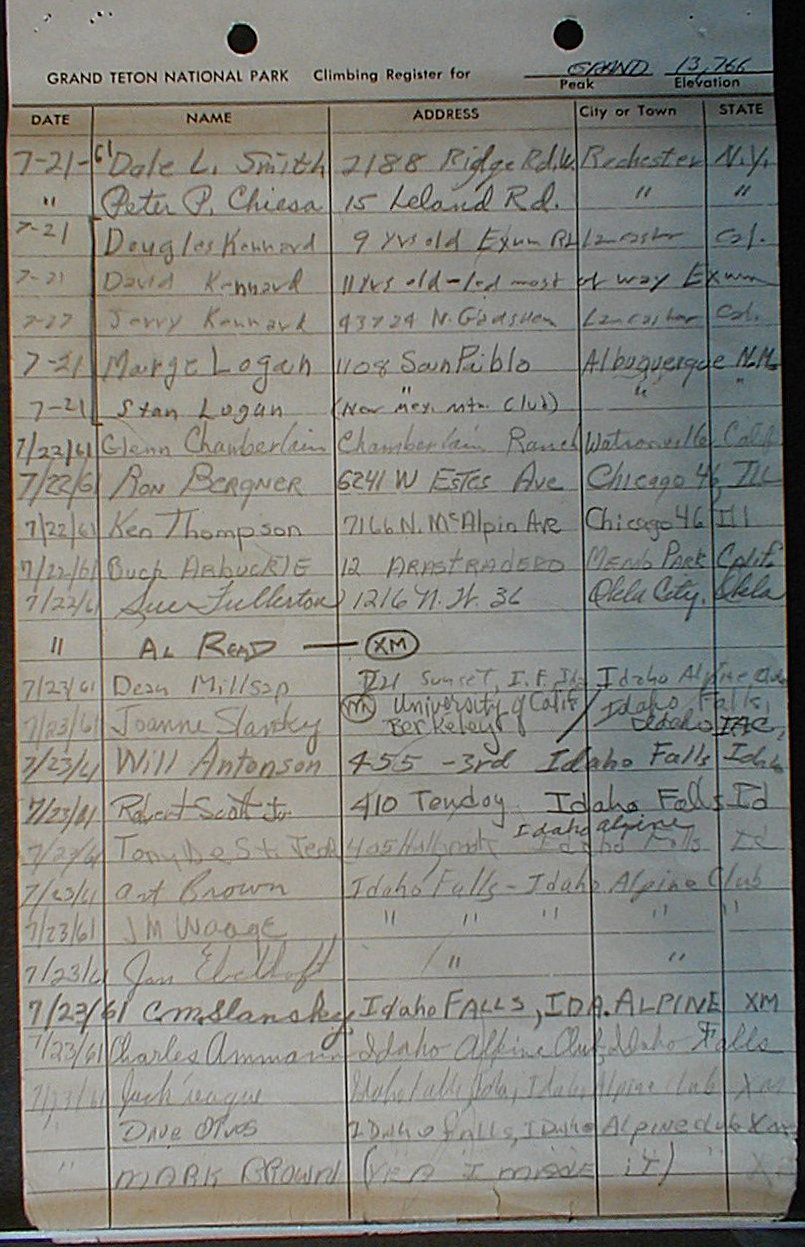 GRAND TETON NATIONAL PARK Climbing Register for GRAND 13,766
Peak Elevation
DATE NAME ADDRESS City or Town STATE
7-21-61 Dale L. Smith 2188 Ridge Rd.W. Rochester N.Y.
" Peter P. Chiesa 15 Leland Rd. " "
7-21 Douglas Kennard 9 yrs old Exum Lancaster Cal.
7-21 David Kennard 11 yrs old - led most of way Exum
Jerry Kennard 43724 N. Lancaster Cal.
7-21 Marge Logan 1108 San Pablo Albuquerque N.M.
7-21 Stan Logan " (New Mex. Mtn. Club) " "
7/22/61 Glenn Chamberlain Chamberlain Ranch Watsonville Calif
7/22/61 RON BERGNER 6241 W ESTES Ave Chicago 46, ILL
7/22/61 Ken Thompson 7166 N. McAlpin Ave Chicago 46 Ill
7/22/61 Buck ARBUCKlE 12 ARASTRADERO MENLO PARK CALIF
7/22/61 Fullerton 1216 N.W. 36 Okla City, Okla
" AL READ — XM
7/23/61 Dean Millsap Sunset, I.F. Ida Idaho Alpine Club
7/23/61 Joanne Slansky University of Calif Berkeley / Idaho Falls, Idaho IAC,
7/23/61 Will Antonson 455 - 3rd Idaho Falls Idaho
7/23/61 Robert Scott Jr. 410 Tendoy Idaho Falls Id
Idaho alpine
7/23/61 Tony De St. 405 Idaho Falls Id
7/23/61 Art Brown Idaho Falls - Idaho Alpine Club
7/23/61 JM Waage " " " " "
7/23/61 Jan " "
7/23/61 C.M. Slansky, Idaho FALLS, IDA. ALPINE XM
7/23/61 Charles Ammann Idaho Alpine Club, Idaho Falls
7/23/61 Jack Idaho Falls, Ida, Idaho Alpine Club XM
" Dave Idaho falls, Idaho Alpine club XM
" MARK BROWN (YEA I MADE iT) "